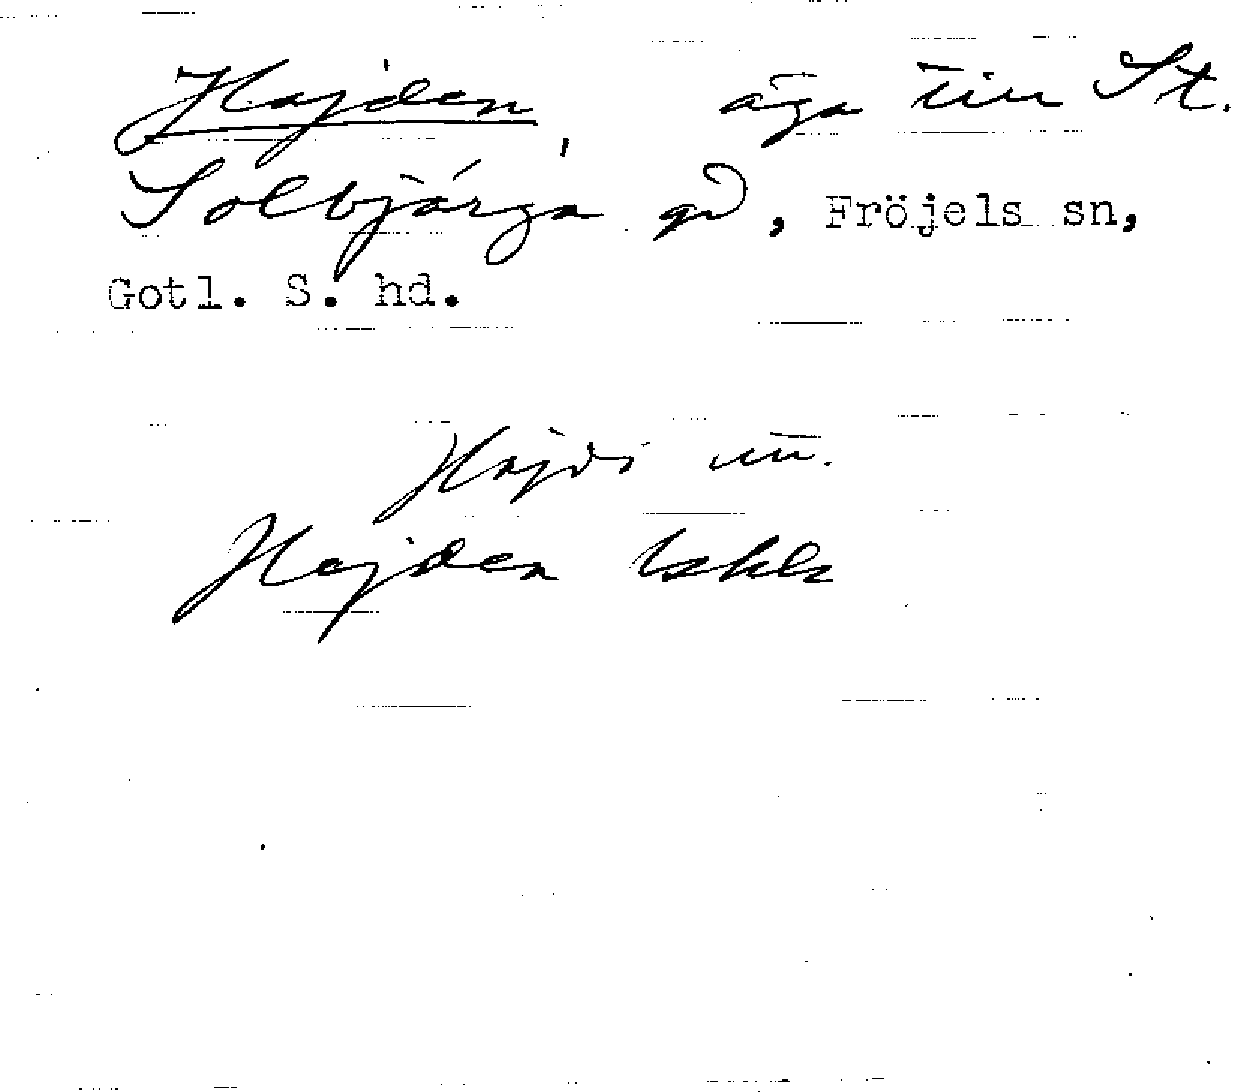 Hajden, äga till St.
Solbjärga gd, Fröjels sn,
Gotl. S. hd.
Hajdi
Hajden